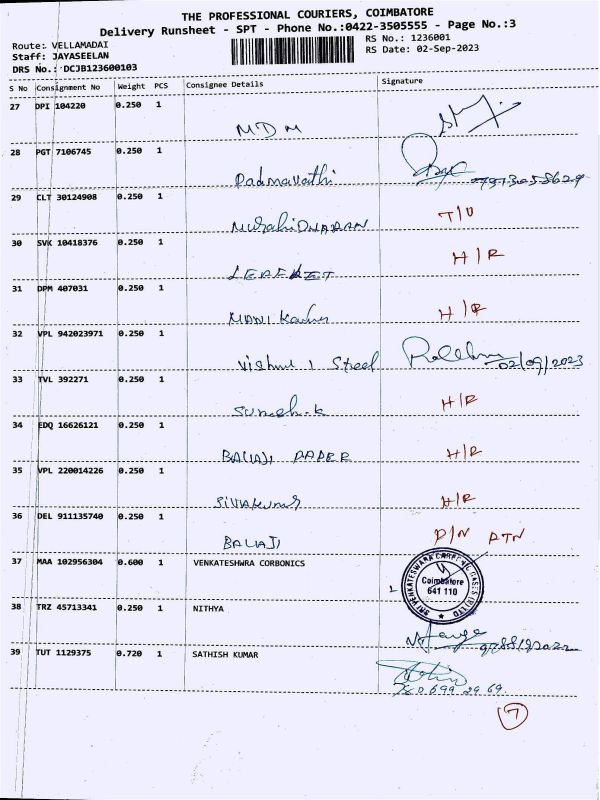 THE PROFESSIONAL COURIERS, COIMBATORE
Delivery Runsheet - SPT - Phone No.:0422-3505555 - Page No.:3
Route: VELLAMADAI
RS No.: 1236001
Staff: JAYASEELAN
RS Date: 02-Sep-2023
DRS No.: DCJB123600103
S No Consignment No Weight PCS Consignee Details Signature
27 DPI 104220 0.250 1
MDM
28 PGT 7106745 0.250 1
Padmavathi
29 CLT 30124908 0.250 1
T/U
MuraliDHARAN
30 SVK 10418376 0.250 1
H/R
31 DPM 407031 0.250 1
H/R
MANI Kandan
32 VPL 942023971 0.250 1
Vishnu 1 Steel
02/09/2023
33 TVL 392271 0.250 1
H/R
Sumesh.k
34 EDQ 16626121 0.250 1
BALIAJI PAPER H/R
35 VPL 220014226 0.250 1
SIVAkumar H/R
36 DEL 911135740 0.250 1
D/N RTN
BALIAJI
37 MAA 102956304 0.600 1 VENKATESHWRA CORBONICS
SRI VENKATESWARA CARBONIC GASES (P) LTD
Coimbatore
641 110
1
38 TRZ 45713341 0.250 1 NITHYA
39 TUT 1129375 0.720 1 SATHISH KUMAR
7